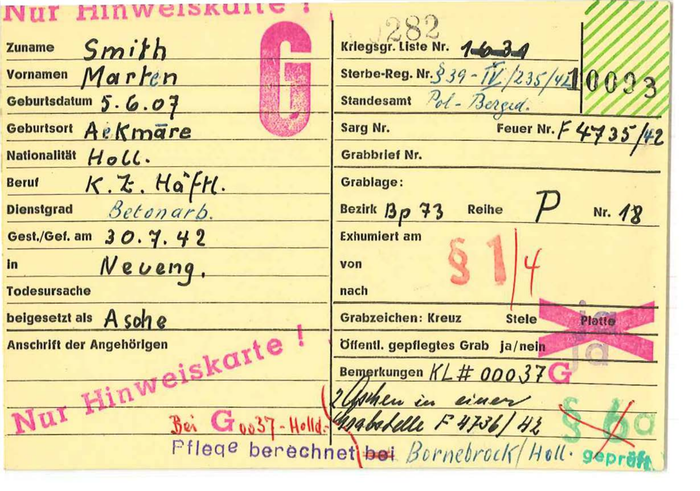 Nur Hinweiskarte !
Zuname Smith
Vornamen Marten
Geburtsdatum 5.6.07
Geburtsort Aekmāre
Nationalität Holl.
Beruf K.Z. Häftl.
Dienstgrad Betonarb.
Gest./Gef. am 30.7.42
in Neueng.
Todesursache
beigesetzt als Asche
Anschrift der Angehörigen
Nur Hinweiskarte !
Bei G 0037-Holld.
G
282
Kriegsgr. Liste Nr. 1631
Sterbe-Reg. Nr. § 39 - IV/235/42
10093
Standesamt Pol-Berged.
Sarg Nr. Feuer Nr. F 4735/42
Grabbrief Nr.
Grablage:
Bezirk Bp 73 Reihe P Nr. 18
Exhumiert am
von
nach
§ 1/4
Grabzeichen: Kreuz Stele Platte
ja
Öffentl. gepflegtes Grab ja/nein
ja
Bemerkungen KL # 00037 G
2 Aschen in einer
Grabstelle F 4736/42
§ 6a
Pflege berechnet bei Bornebrock/Holl. geprüft